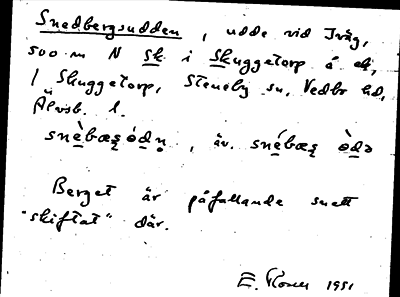 Snedbergsudden, udde vid Iväg,
500 m N Sk i Skuggetorp å ek,
1 Skuggetorp, Steneby sn, Vedbo hd,
Älvsb. l.
snèbæʂ ód̥ṇ, äv. snébæʂ òdə
Berget är påfallande snett
"skiftat" där.
E. 1951